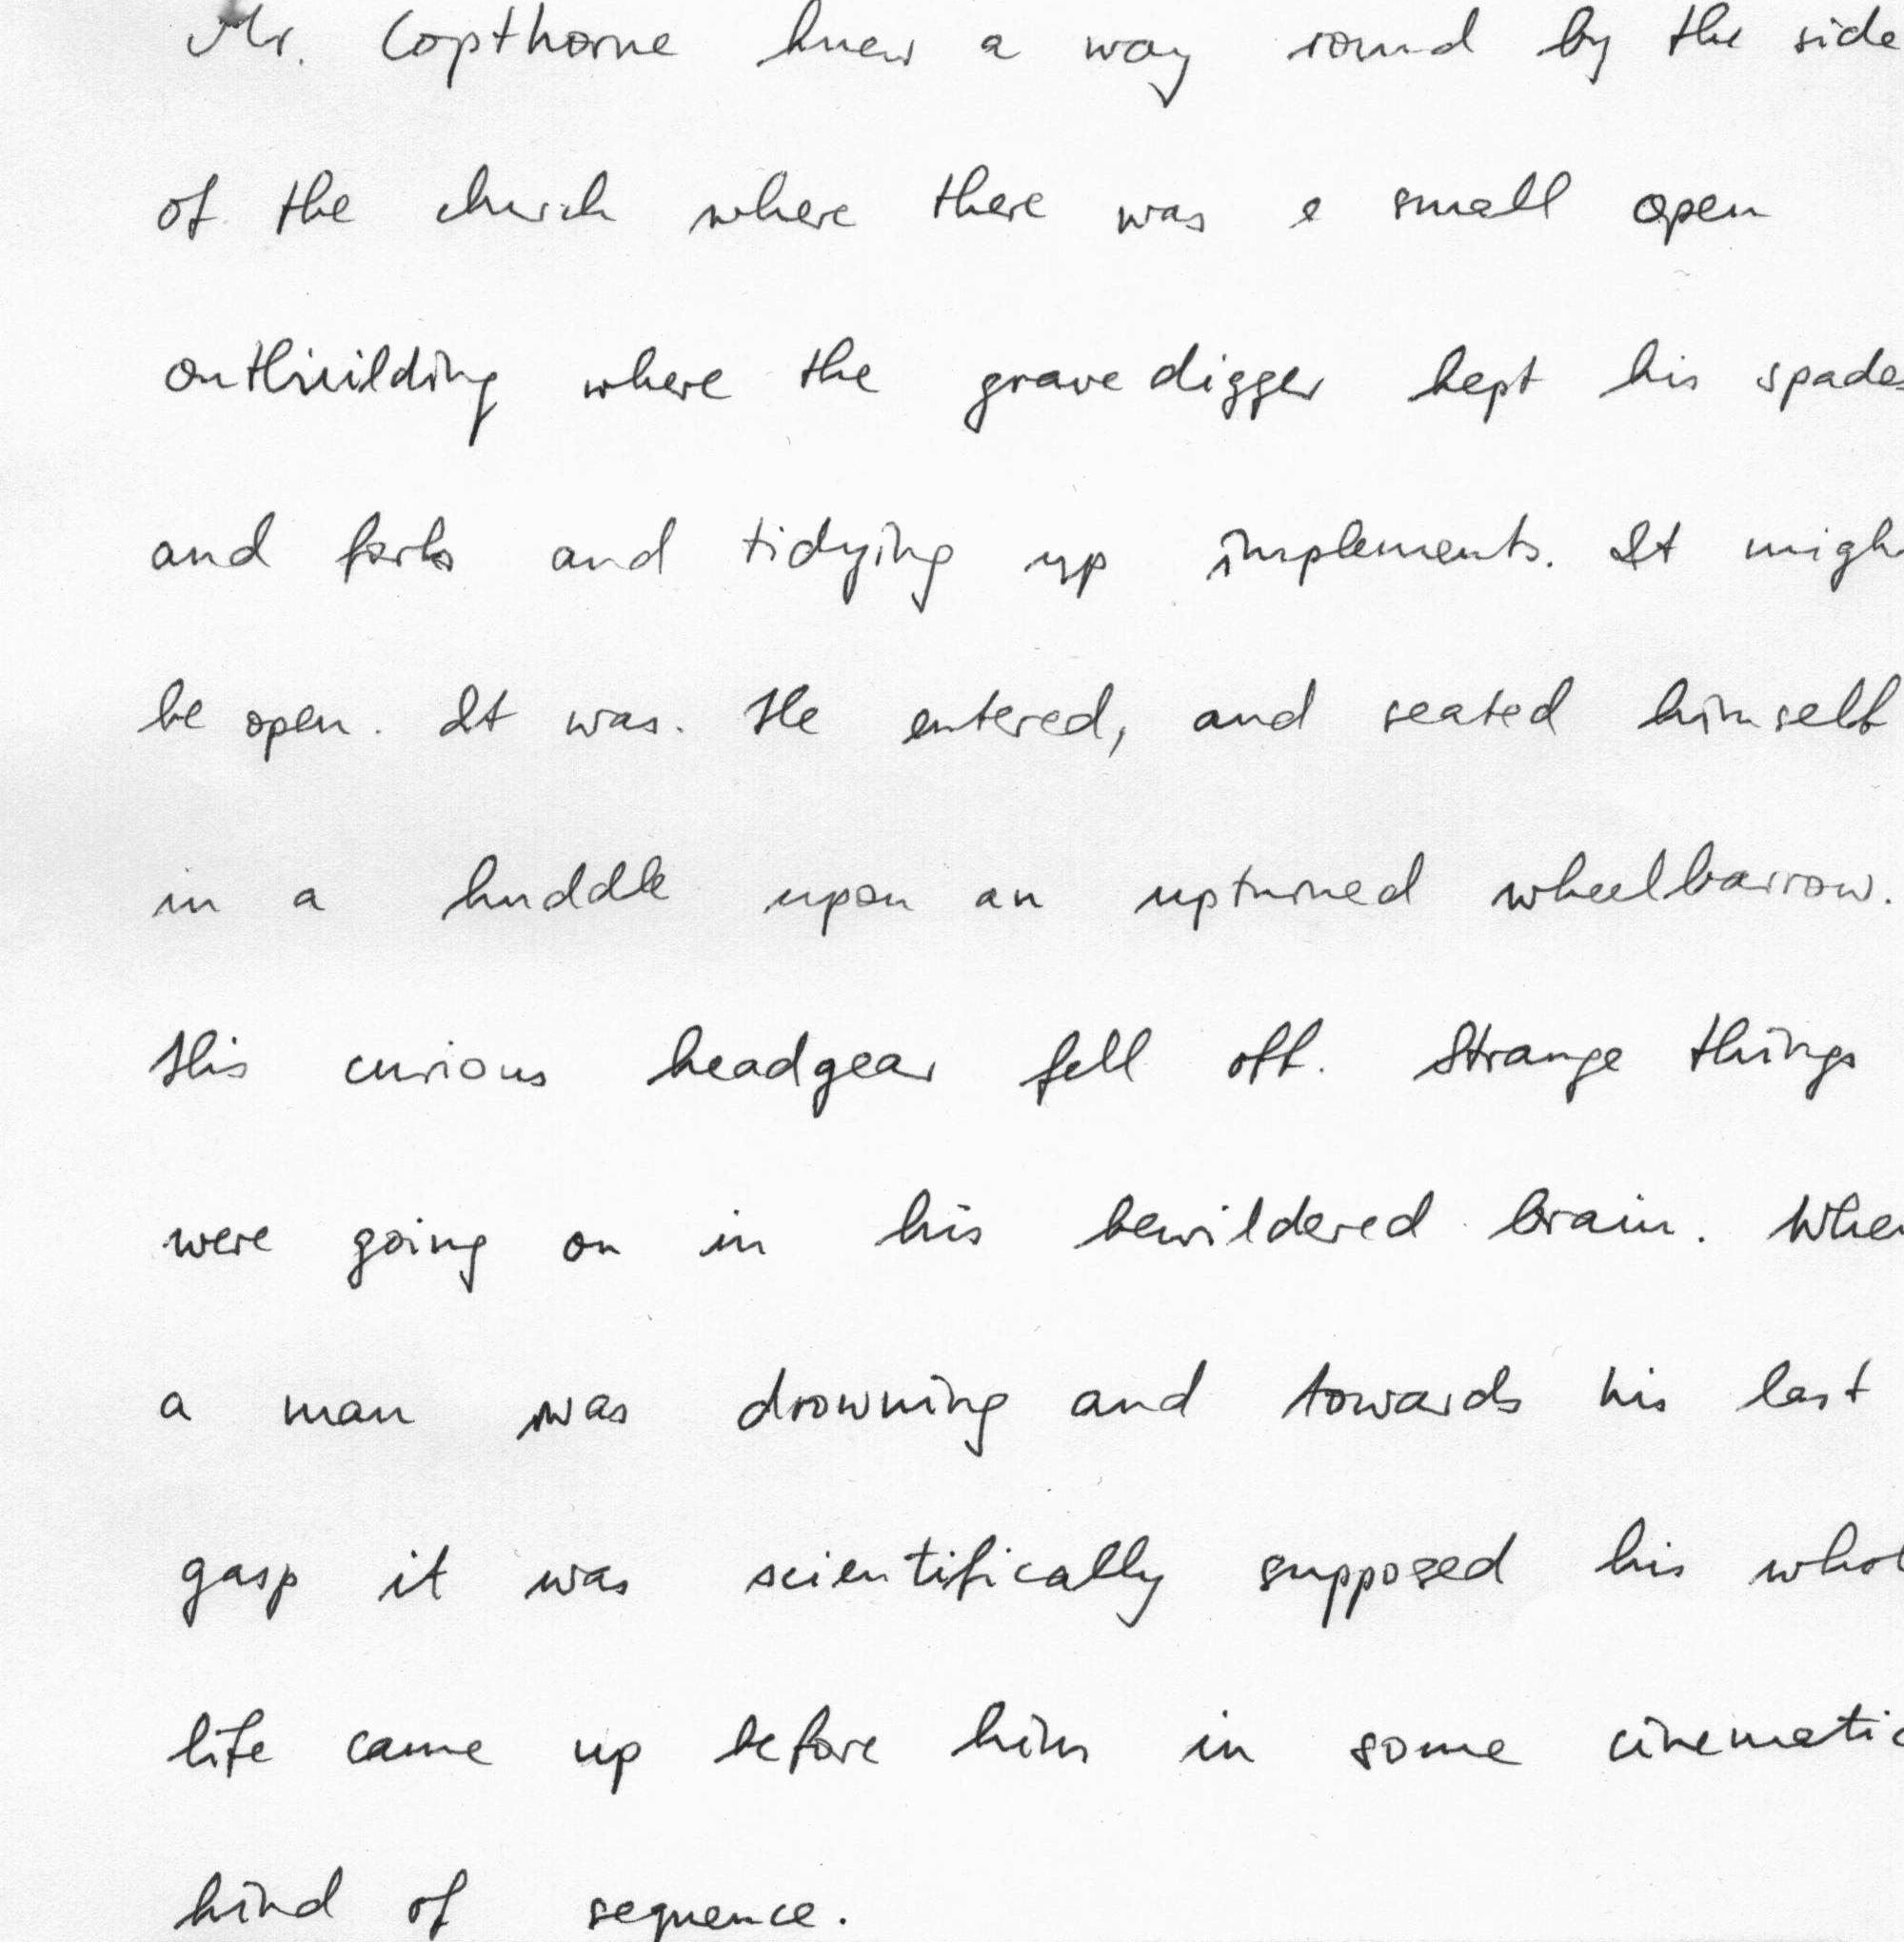 Mr. Copthorne knew a way round by the side
of the church where there was a small open
outbuilding where the gravedigger kept his spades
and forks and tidying up implements. It migh
be open. It was. He entered, and seated himself
in a huddle upon an upturned wheelbarrow.
His curious headgear fell off. Strange things
were going on in his bewildered brain. When
a man was drowning and towards his last
gasp it was scientifically supposed his whol
life came up before him in some cinematic
kind of sequence.